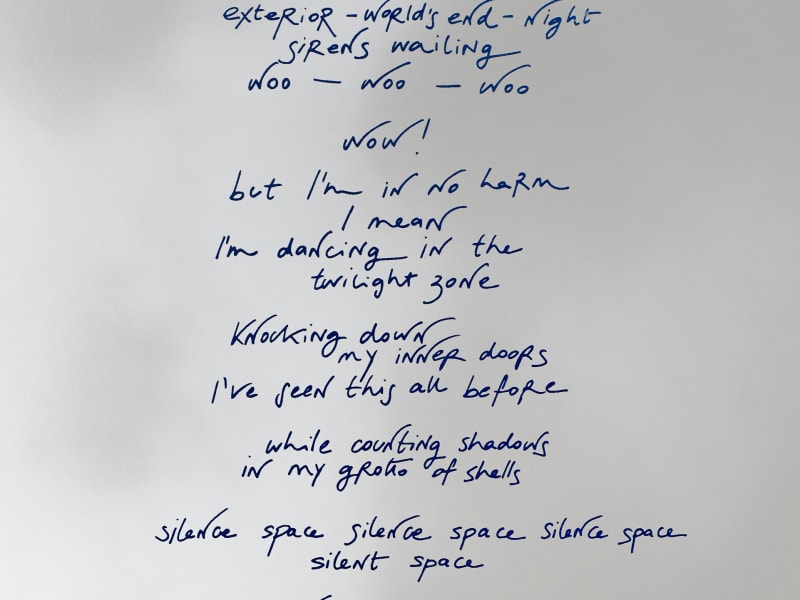 exterior - world's end - night
sirens wailing
woo — woo — woo
wow!
but I'm in no harm
I mean
I'm dancing in the
twilight zone
knocking down
my inner doors
I've seen this all before
while counting shadows
in my grotto of shells
silence space silence space silence space
silent space